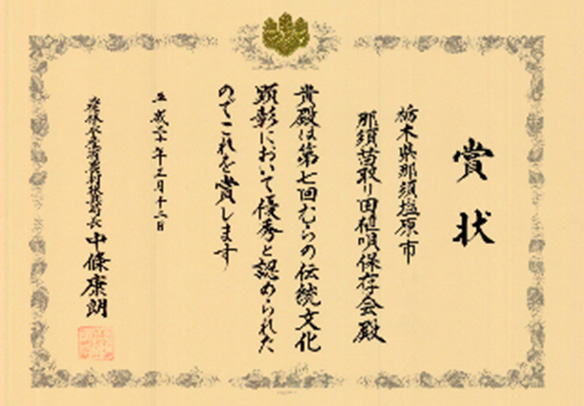 賞状
栃木県那須塩原市
那須苗取り田植唄保存会殿
貴殿は第七回むらの伝統文化
顕彰において優秀と認められた
のでこれを賞します
平成二十年三月十二日
農林水産省農村振興局長 中條康朗